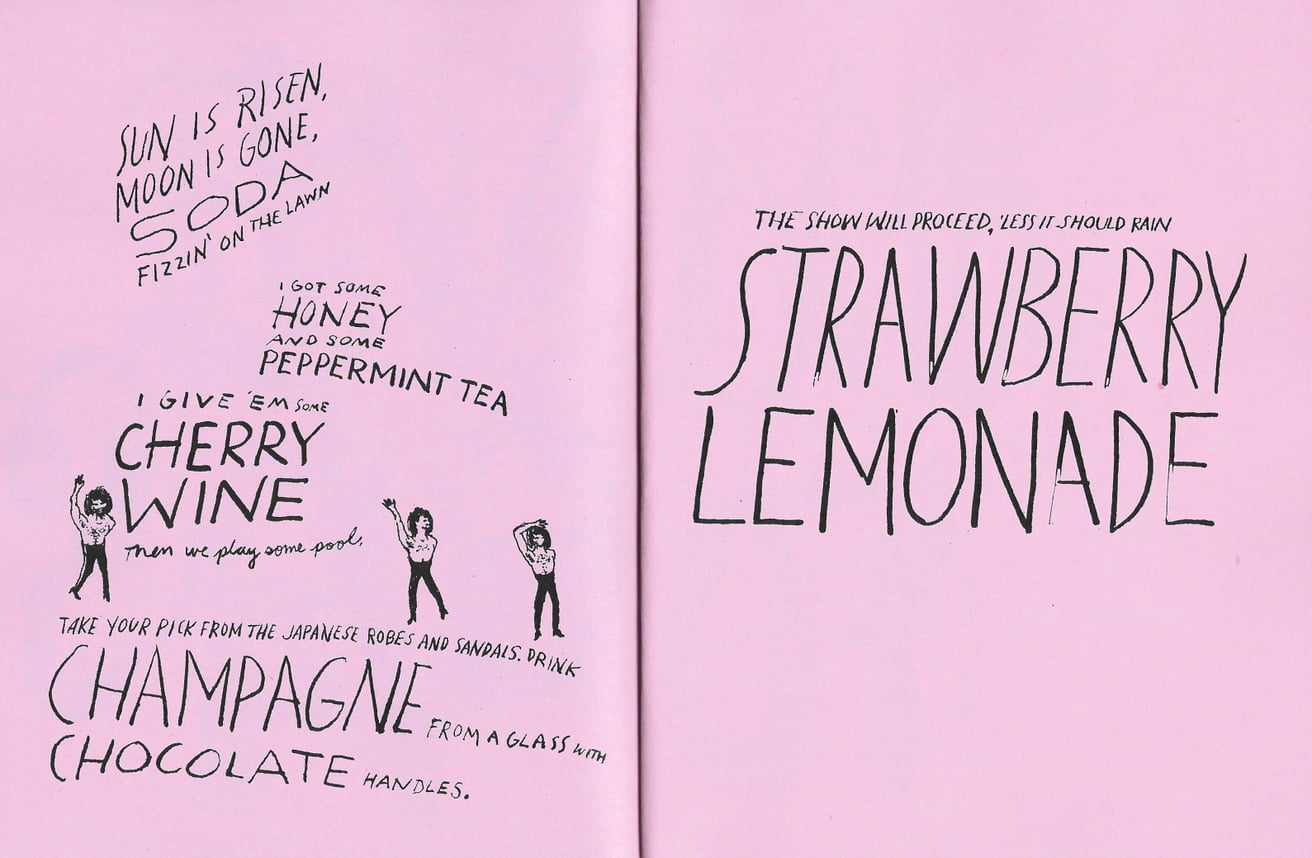 SUN IS RISEN,
MOON IS GONE,
SODA
FIZZIN' ON THE LAWN
I GOT SOME
HONEY
AND SOME
PEPPERMINT TEA
I GIVE 'EM SOME
CHERRY
WINE
Then we play some pool,
TAKE YOUR PICK FROM THE JAPANESE ROBES AND SANDALS. DRINK
CHAMPAGNE FROM A GLASS WITH
CHOCOLATE HANDLES.
THE SHOW WILL PROCEED, 'LESS IT SHOULD RAIN
STRAWBERRY
LEMONADE